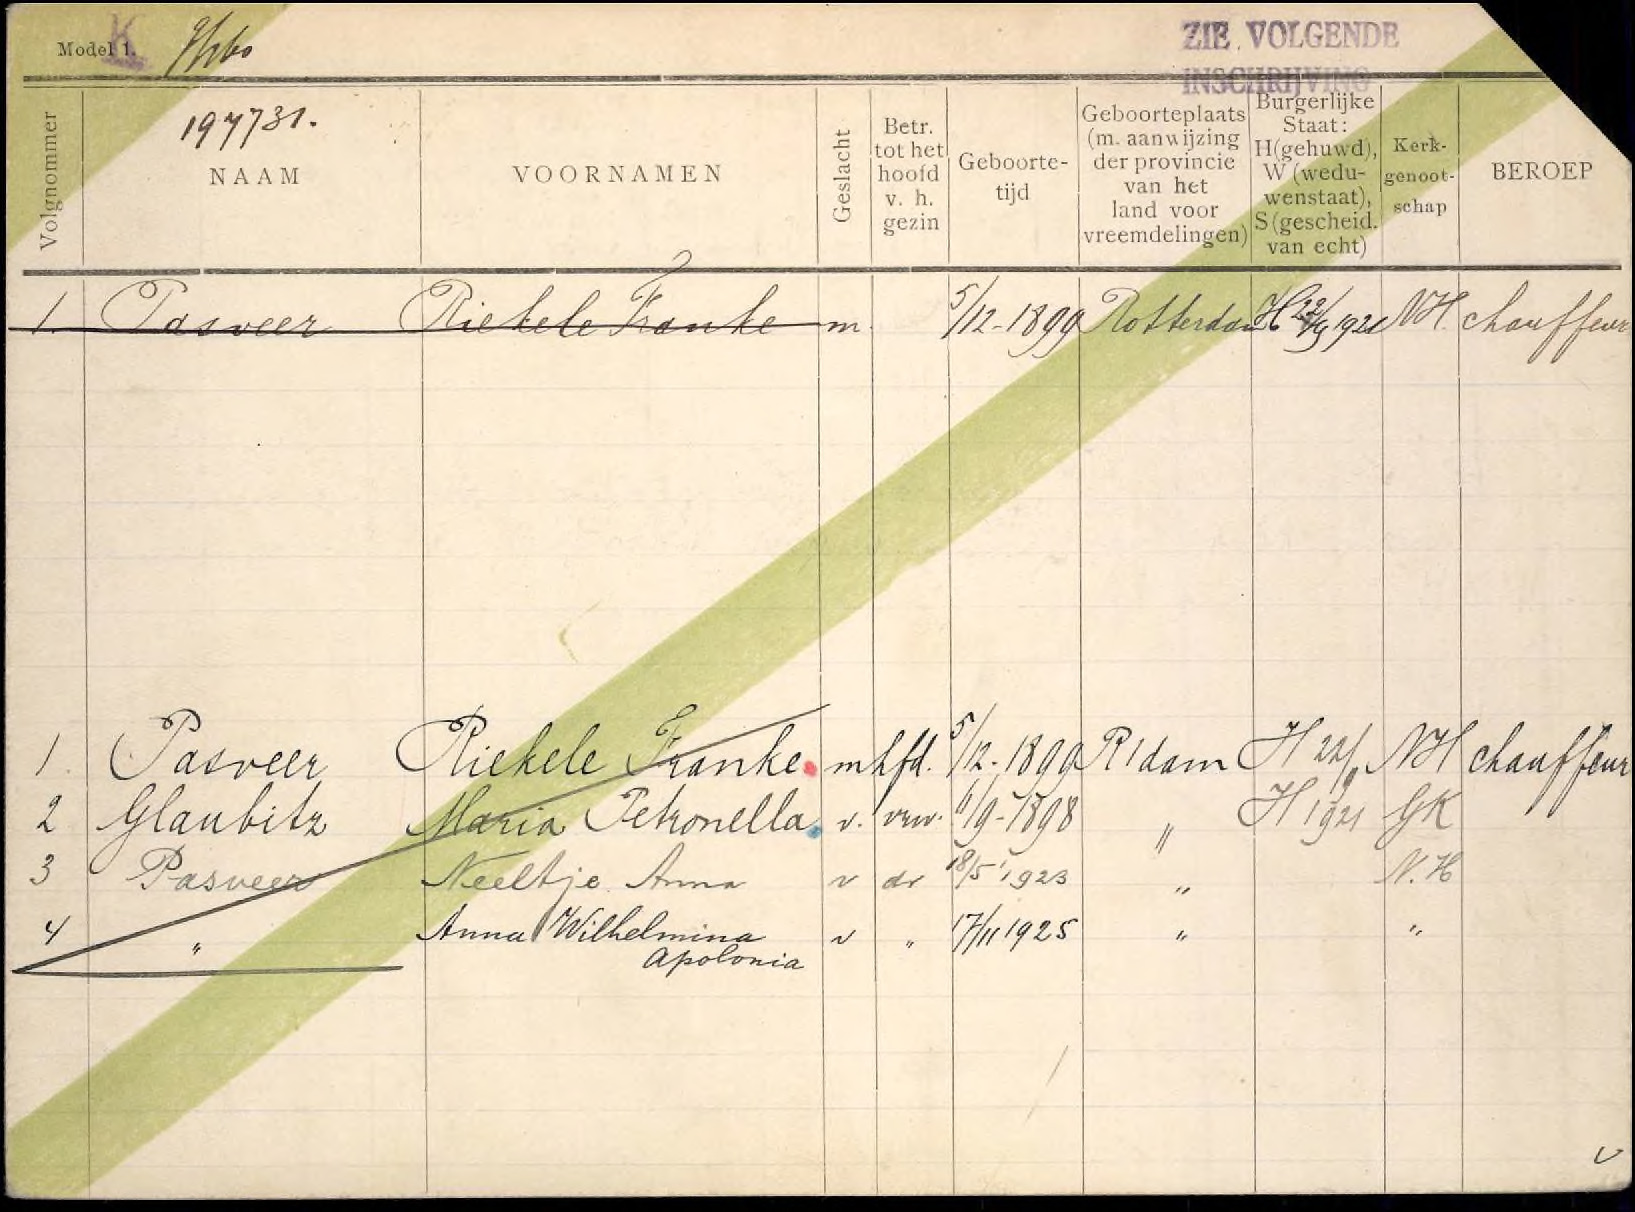 Model 1. K
ZIE VOLGENDE
INSCHRIJVING
197731.
Volgnommer
NAAM
VOORNAMEN
Geslacht
Betr.
tot het
hoofd
v. h.
gezin
Geboorte-
tijd
Geboorteplaats
(m. aanwijzing
der provincie
van het
land voor
vreemdelingen)
Burgerlijke
Staat:
H(gehuwd),
W (wedu-
wenstaat),
S (gescheid.
van echt)
Kerk-
genoot-
schap
BEROEP
1. Pasveer Riekele Franke m. 5/12-1899 Rotterdam H 22/9 1921 NH. chauffeur
1. Pasveer Riekele Franke. m hfd. 5/12-1899 R'dam H 22/9 NH chauffeur
2 Glaubitz Maria Petronella. v. vrw. 6/9-1898 " H 1921 GK
3 Pasveer Neeltje Anna v dr 18/5 1923 " N.H
4 " Anna Wilhelmina v " 17/11 1925 " "
Apolonia